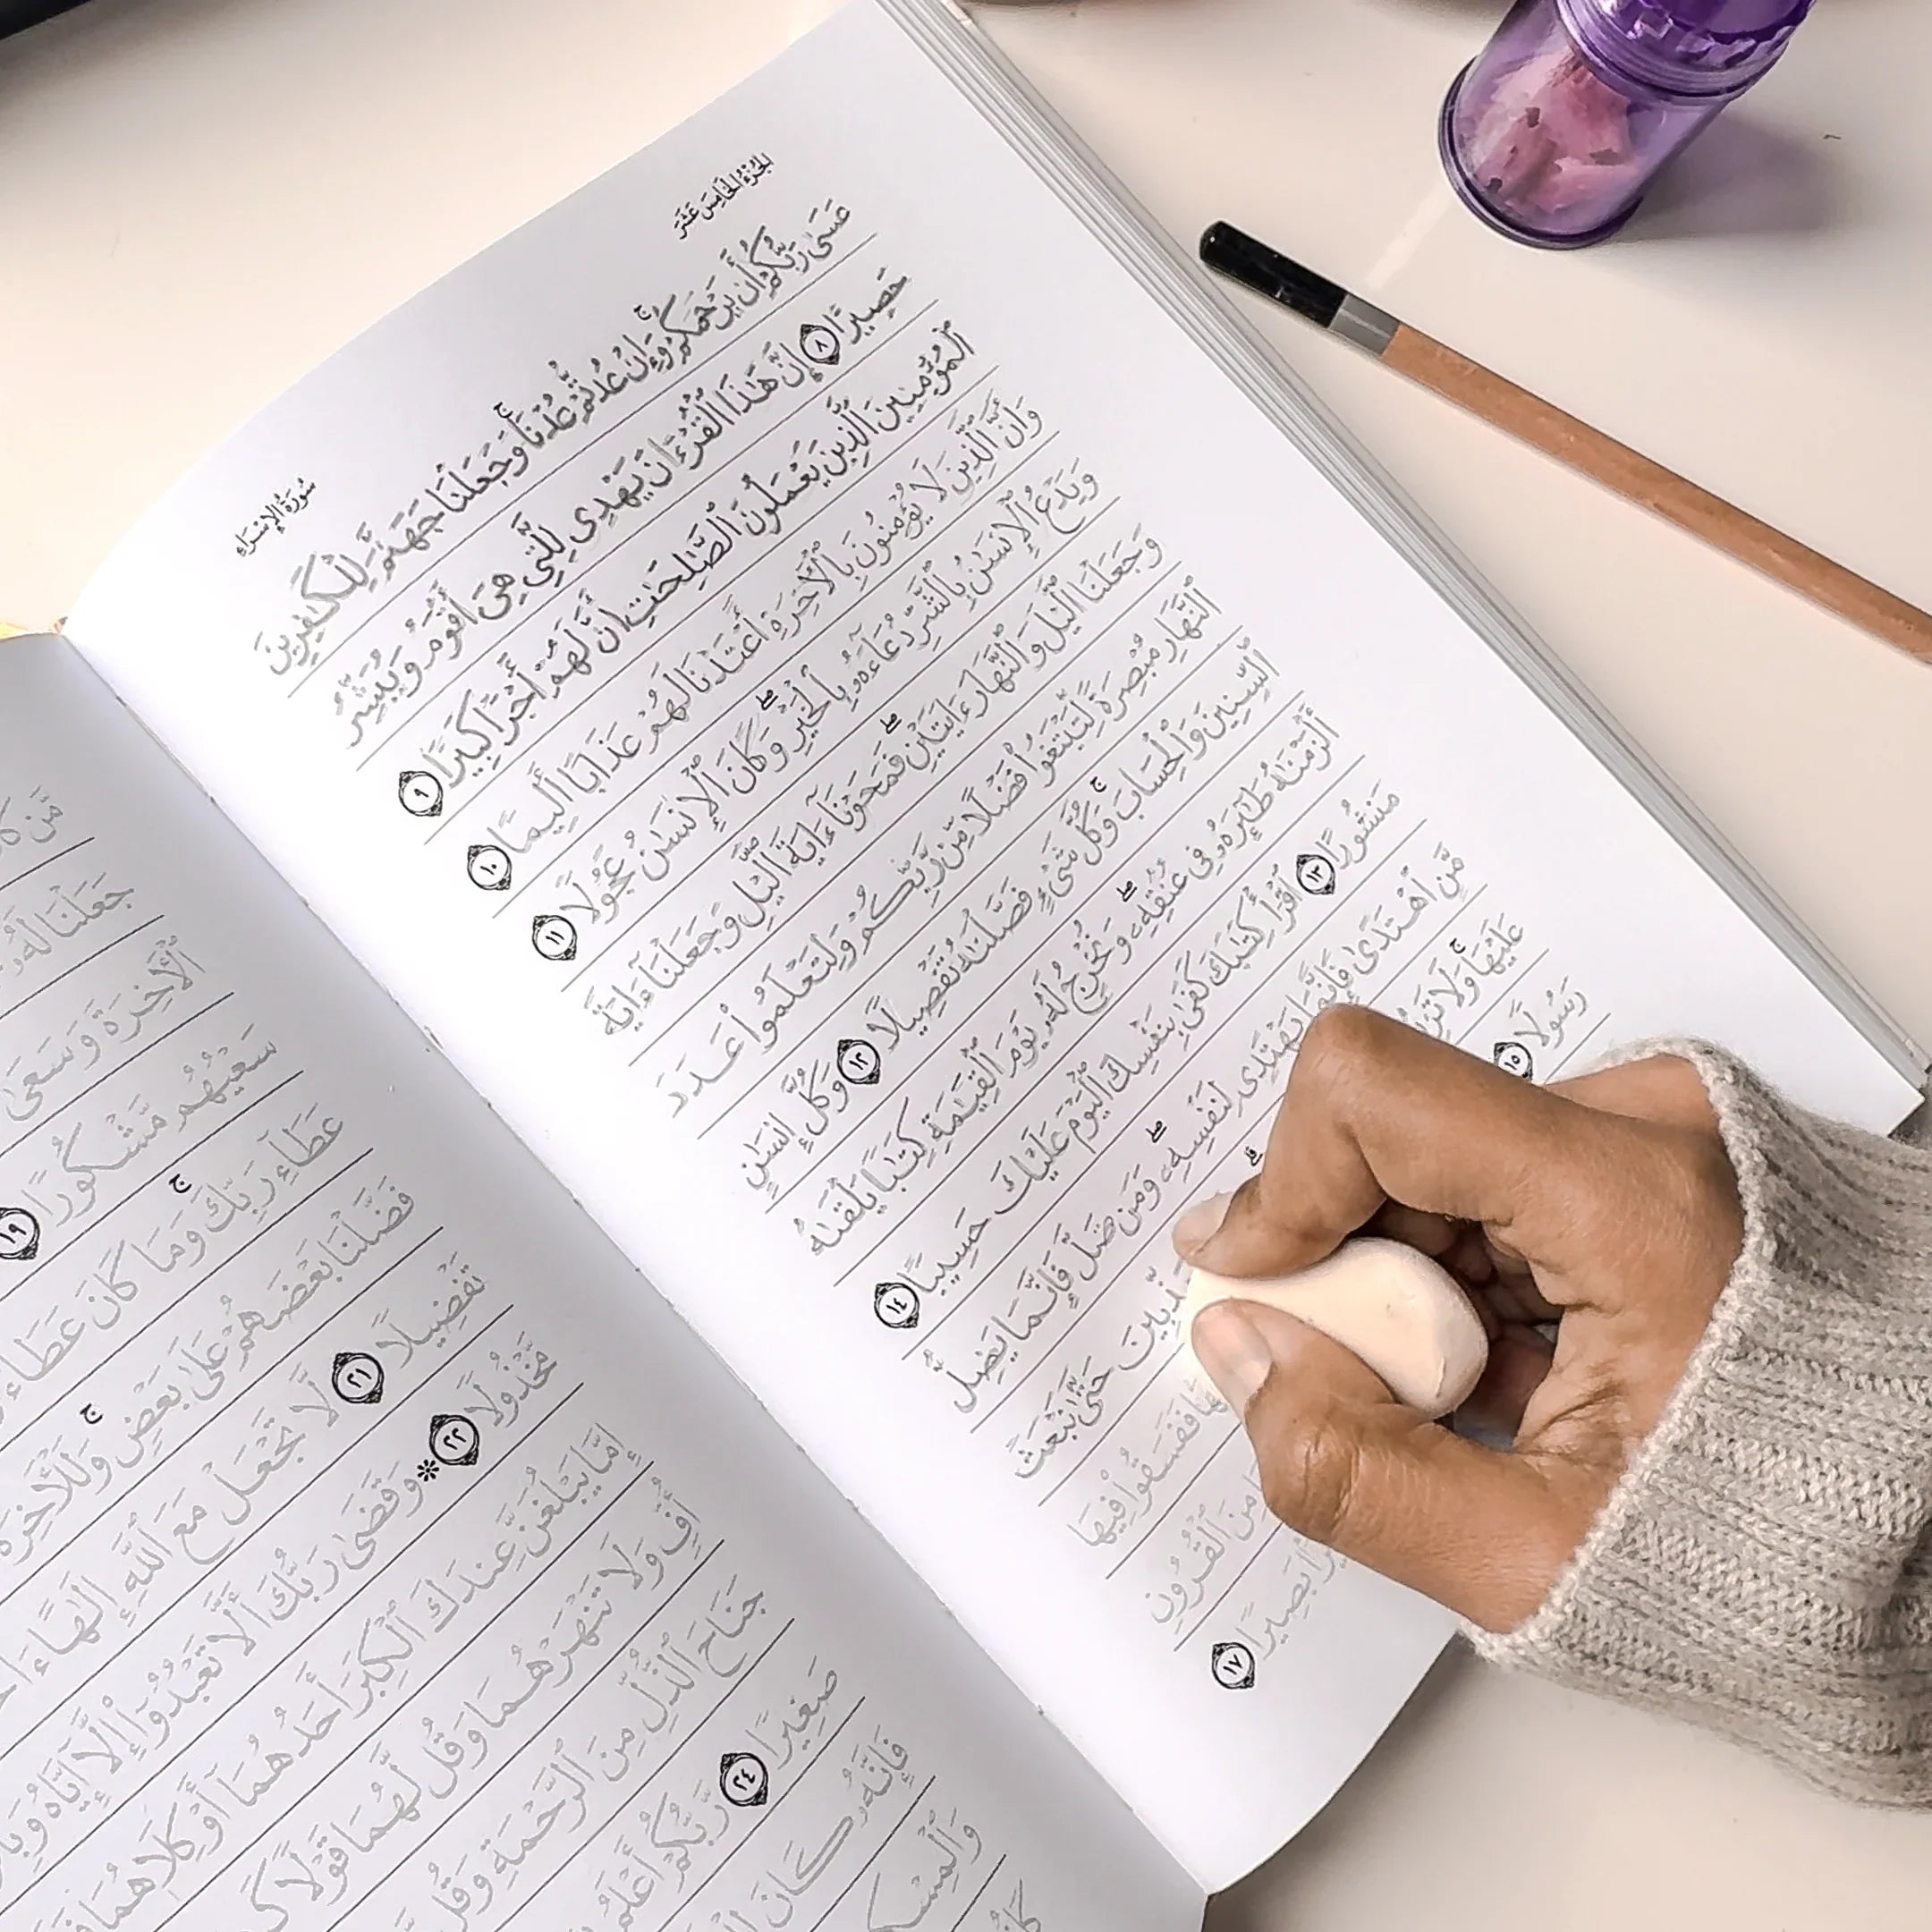 الجزء الخامس عشر
سورة الإسراء
عَسَىٰ رَبُّكُمْ أَن يَرْحَمَكُمْ ۚ وَإِنْ عُدتُّمْ عُدْنَا ۚ وَجَعَلْنَا جَهَنَّمَ لِلْكَـٰفِرِينَ
حَصِيرًا ٨ إِنَّ هَـٰذَا ٱلْقُرْءَانَ يَهْدِى لِلَّتِى هِىَ أَقْوَمُ وَيُبَشِّرُ
ٱلْمُؤْمِنِينَ ٱلَّذِينَ يَعْمَلُونَ ٱلصَّـٰلِحَـٰتِ أَنَّ لَهُمْ أَجْرًا كَبِيرًا ٩
وَأَنَّ ٱلَّذِينَ لَا يُؤْمِنُونَ بِٱلْـَٔاخِرَةِ أَعْتَدْنَا لَهُمْ عَذَابًا أَلِيمًا ١٠
وَيَدْعُ ٱلْإِنسَـٰنُ بِٱلشَّرِّ دُعَآءَهُۥ بِٱلْخَيْرِ ۖ وَكَانَ ٱلْإِنسَـٰنُ عَجُولًا ١١
وَجَعَلْنَا ٱلَّيْلَ وَٱلنَّهَارَ ءَايَتَيْنِ ۖ فَمَحَوْنَآ ءَايَةَ ٱلَّيْلِ وَجَعَلْنَآ ءَايَةَ
ٱلنَّهَارِ مُبْصِرَةً لِّتَبْتَغُوا۟ فَضْلًا مِّن رَّبِّكُمْ وَلِتَعْلَمُوا۟ عَدَدَ
ٱلسِّنِينَ وَٱلْحِسَابَ ۚ وَكُلَّ شَىْءٍ فَصَّلْنَـٰهُ تَفْصِيلًا ١٢ وَكُلَّ إِنسَـٰنٍ
أَلْزَمْنَـٰهُ طَـٰٓئِرَهُۥ فِى عُنُقِهِۦ ۖ وَنُخْرِجُ لَهُۥ يَوْمَ ٱلْقِيَـٰمَةِ كِتَـٰبًا يَلْقَىٰهُ
مَنشُورًا ١٣ ٱقْرَأْ كِتَـٰبَكَ كَفَىٰ بِنَفْسِكَ ٱلْيَوْمَ عَلَيْكَ حَسِيبًا ١٤
مَّنِ ٱهْتَدَىٰ فَإِنَّمَا يَهْتَدِى لِنَفْسِهِۦ ۖ وَمَن ضَلَّ فَإِنَّمَا يَضِلُّ
عَلَيْهَا ۚ وَلَا حَتَّىٰ نَبْعَثَ
رَسُولًا ١٥ فَفَسَقُوا۟ فِيهَا
مِنَ ٱلْقُرُونِ
بَصِيرًا ١٧
مَّن
جَعَلْنَا لَهُۥ
ٱلْـَٔاخِرَةَ وَسَعَىٰ
سَعْيُهُم مَّشْكُورًا ١٩
عَطَآءِ رَبِّكَ ۚ وَمَا كَانَ عَطَآءُ
فَضَّلْنَا بَعْضَهُمْ عَلَىٰ بَعْضٍ ۚ وَلَلْـَٔاخِرَةُ
تَفْضِيلًا ٢١ لَّا تَجْعَلْ مَعَ ٱللَّهِ إِلَـٰهًا
مَّخْذُولًا ٢٢ * وَقَضَىٰ رَبُّكَ أَلَّا تَعْبُدُوٓا۟ إِلَّآ إِيَّاهُ
إِمَّا يَبْلُغَنَّ عِندَكَ ٱلْكِبَرَ أَحَدُهُمَآ أَوْ كِلَاهُمَا
أُفٍّ وَلَا تَنْهَرْهُمَا وَقُل لَّهُمَا قَوْلًا
جَنَاحَ ٱلذُّلِّ مِنَ ٱلرَّحْمَةِ وَقُل
صَغِيرًا ٢٤ رَّبُّكُمْ أَعْلَمُ
فَإِنَّهُۥ كَانَ
وَٱلْمِسْكِينَ